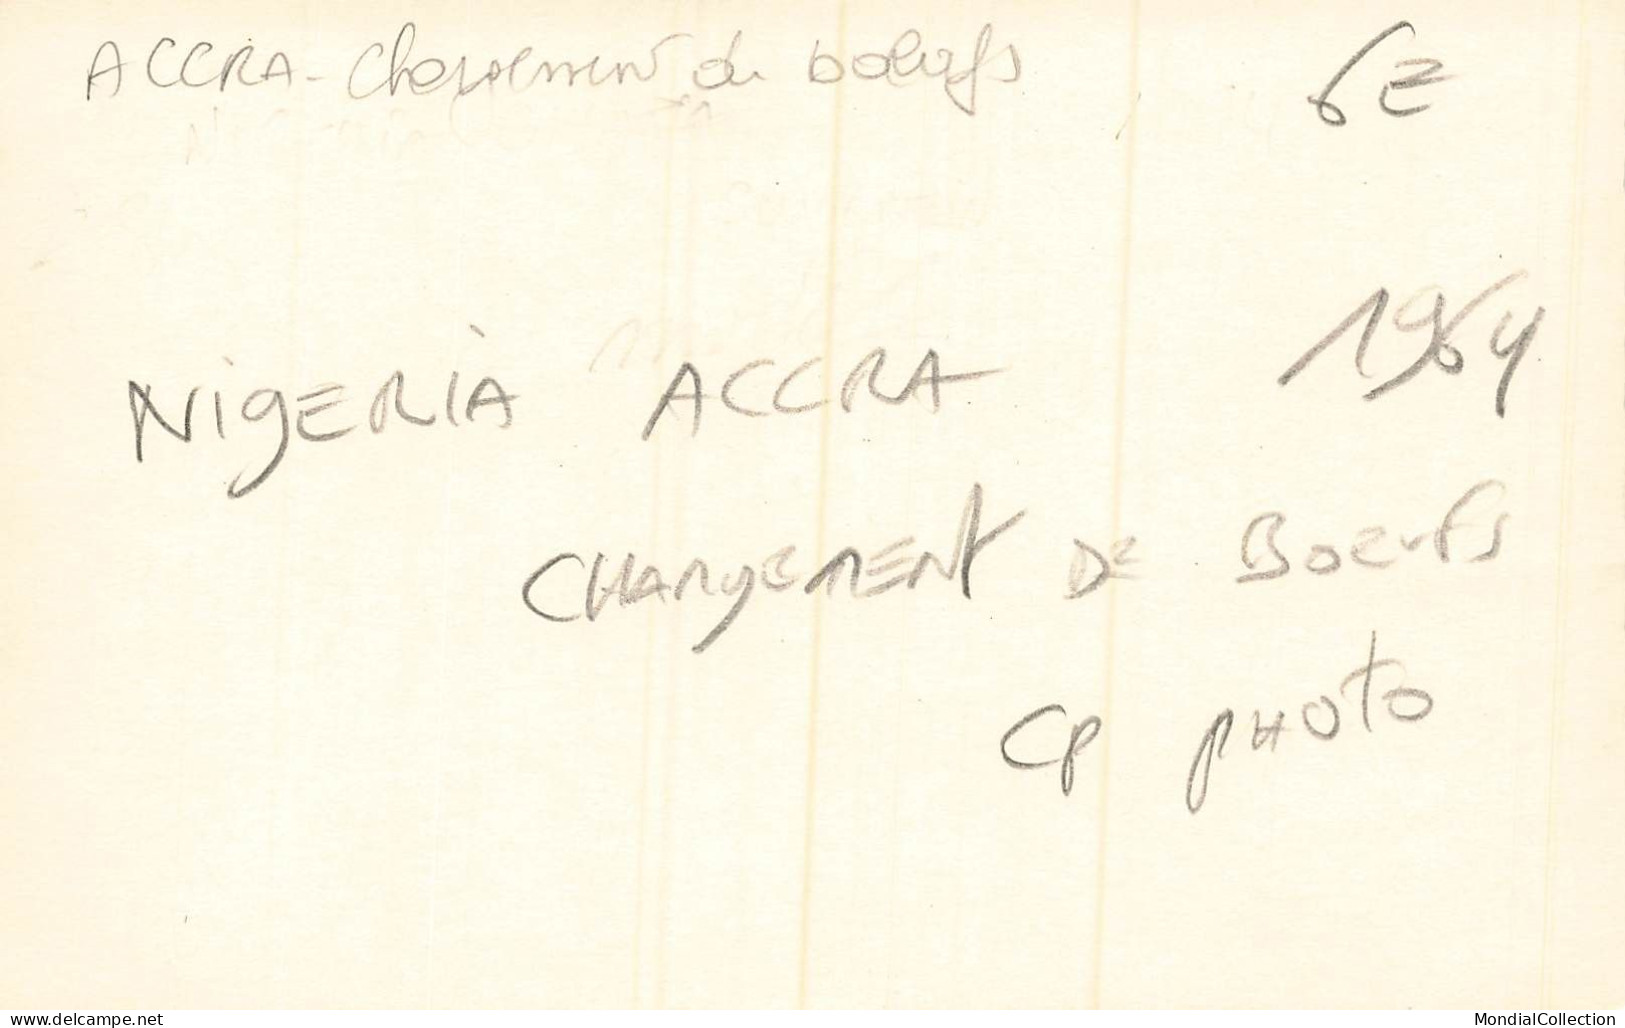 ACCRA - Chargement de boeufs 6E
NIGERIA ACCRA 1964
CHARGEMENT DE BOEUFS
CP PHOTO
www.delcampe.net MondialCollection